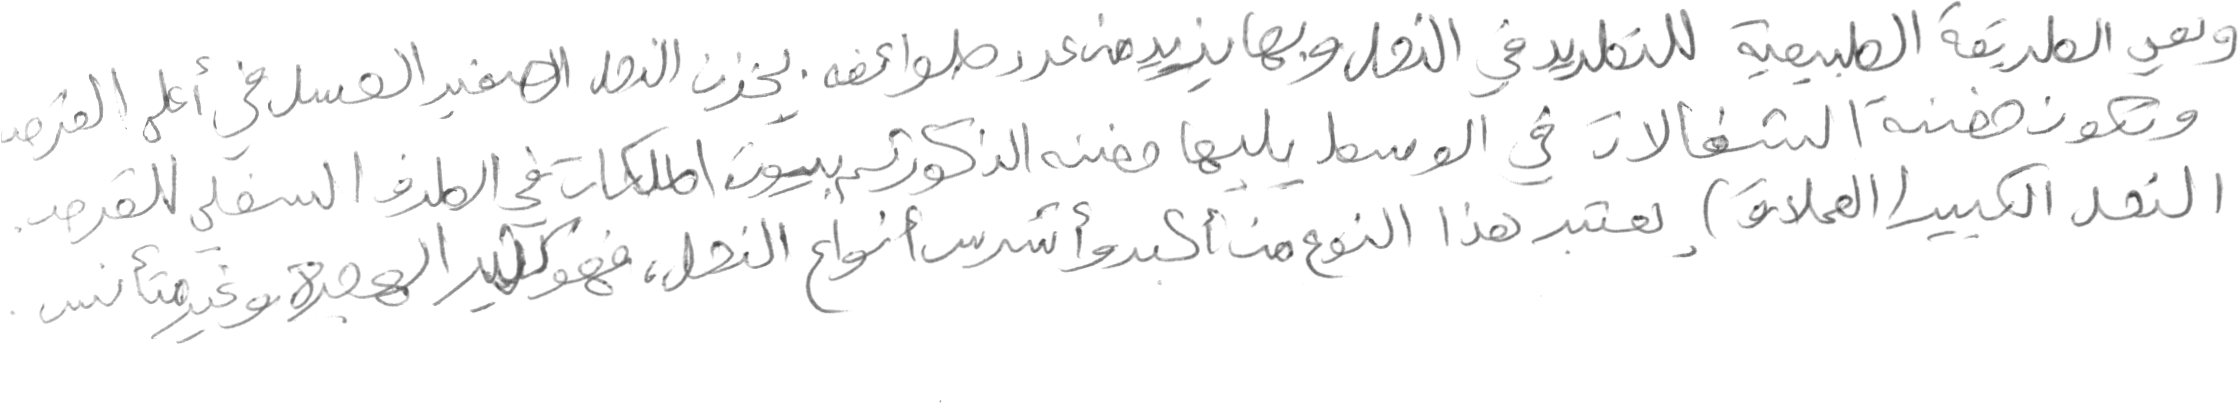 وهي الطريقة الطبيعية للتطريد في النحل وبها يزيد من عدد طوائفه. يخزن النحل الصغير العسل في أعلى القرص
وتكون حضنة الشغالات في الوسط يليها حضنه الذكور ثم بيوت الملكات في الطرف السفلي للقرص.
النحل الكبير (العملاق) يعتبر هذا النوع من أكبر وأشرس أنواع النحل، فهو كثير الهجرة وغير متأنس.